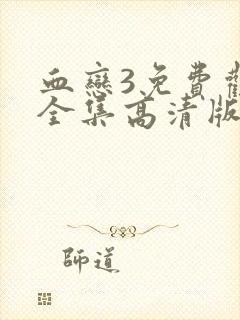 血戀3免費
全集高清版
師道